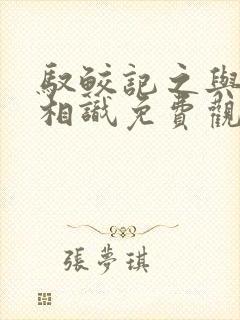 馭鮫記之與
相識免費觀
張夢琪